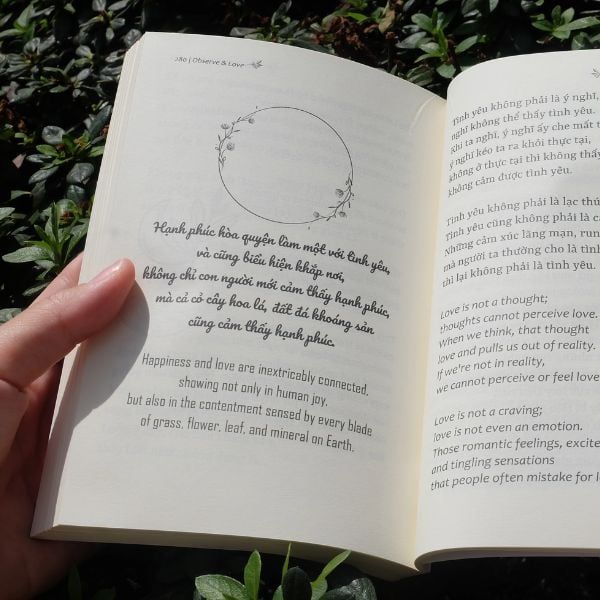 280 | Observe & Love
Hạnh phúc hòa quyện làm một với tình yêu,
và cũng biểu hiện khắp nơi,
không chỉ con người mới cảm thấy hạnh phúc,
mà cả cỏ cây hoa lá, đất đá khoáng sản
cũng cảm thấy hạnh phúc.
Happiness and love are inextricably connected,
showing not only in human joy,
but also in the contentment sensed by every blade
of grass, flower, leaf, and mineral on Earth.
Tình yêu không phải là ý nghĩ,
nghĩ không thể thấy tình yêu.
Khi ta nghĩ, ý nghĩ ấy che mất
ý nghĩ kéo ta ra khỏi thực tại,
không ở thực tại thì không thấy
không cảm được tình yêu.
Tình yêu không phải là lạc thú
Tình yêu cũng không phải là
Những cảm xúc lãng mạn,
mà người ta thường cho là tình
thì lại không phải là tình yêu.
Love is not a thought;
thoughts cannot perceive love.
When we think, that thought
love and pulls us out of reality.
If we're not in reality,
we cannot perceive or feel love
Love is not a craving;
love is not even an emotion.
Those romantic feelings,
and tingling sensations
that people often mistake for